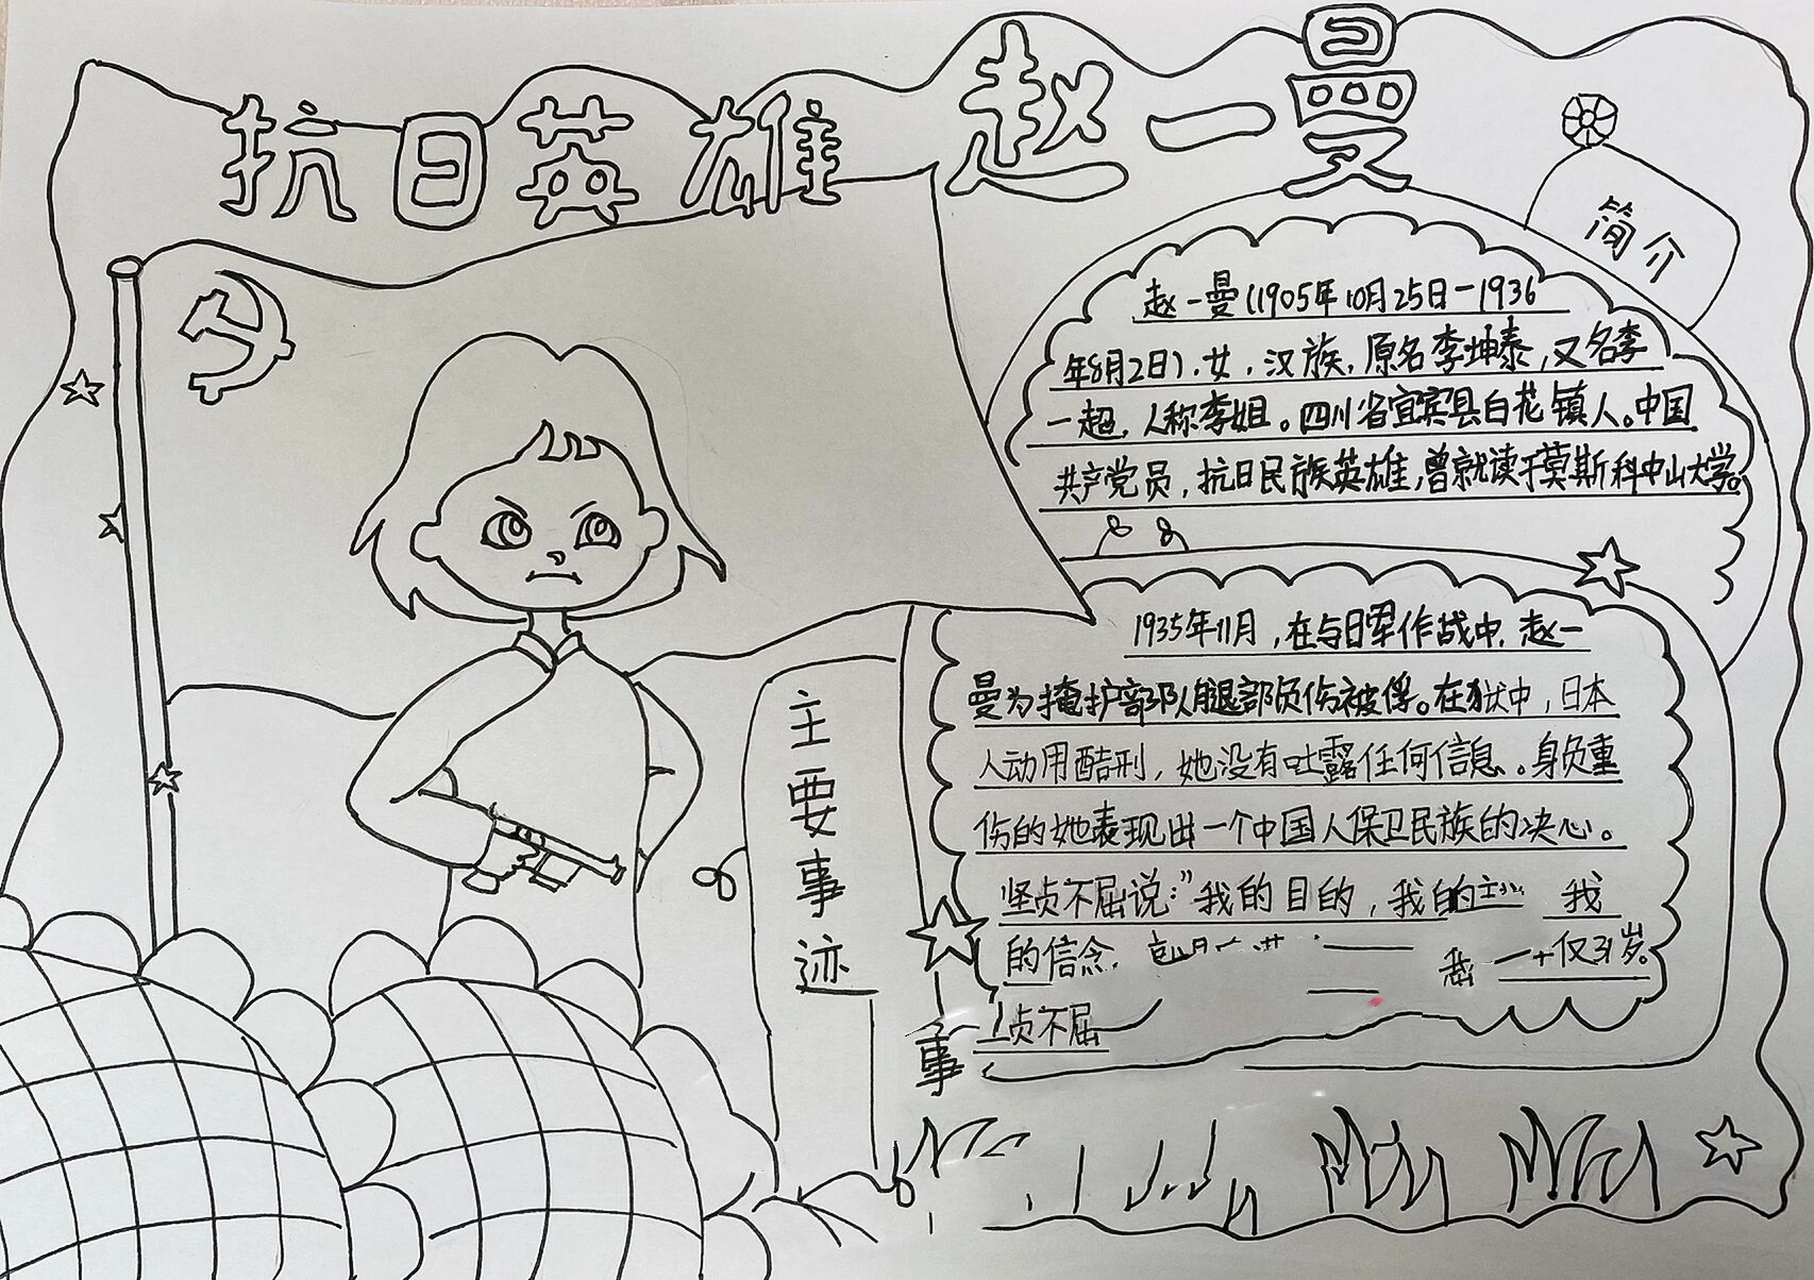 抗日英雄 赵一曼
简介
赵一曼(1905年10月25日-1936
年8月2日),女,汉族,原名李坤泰,又名李
一超,人称李姐。四川省宜宾县白花镇人。中国
共产党员,抗日民族英雄,曾就读于莫斯科中山大学。
主要事迹
1935年11月,在与日军作战中,赵一
曼为掩护部队腿部负伤被俘。在狱中,日本
人动用酷刑,她没有吐露任何信息。身负重
伤的她表现出一个中国人保卫民族的决心。
坚贞不屈说:"我的目的,我的 我
的信念, 仅31岁。
贞不屈
事